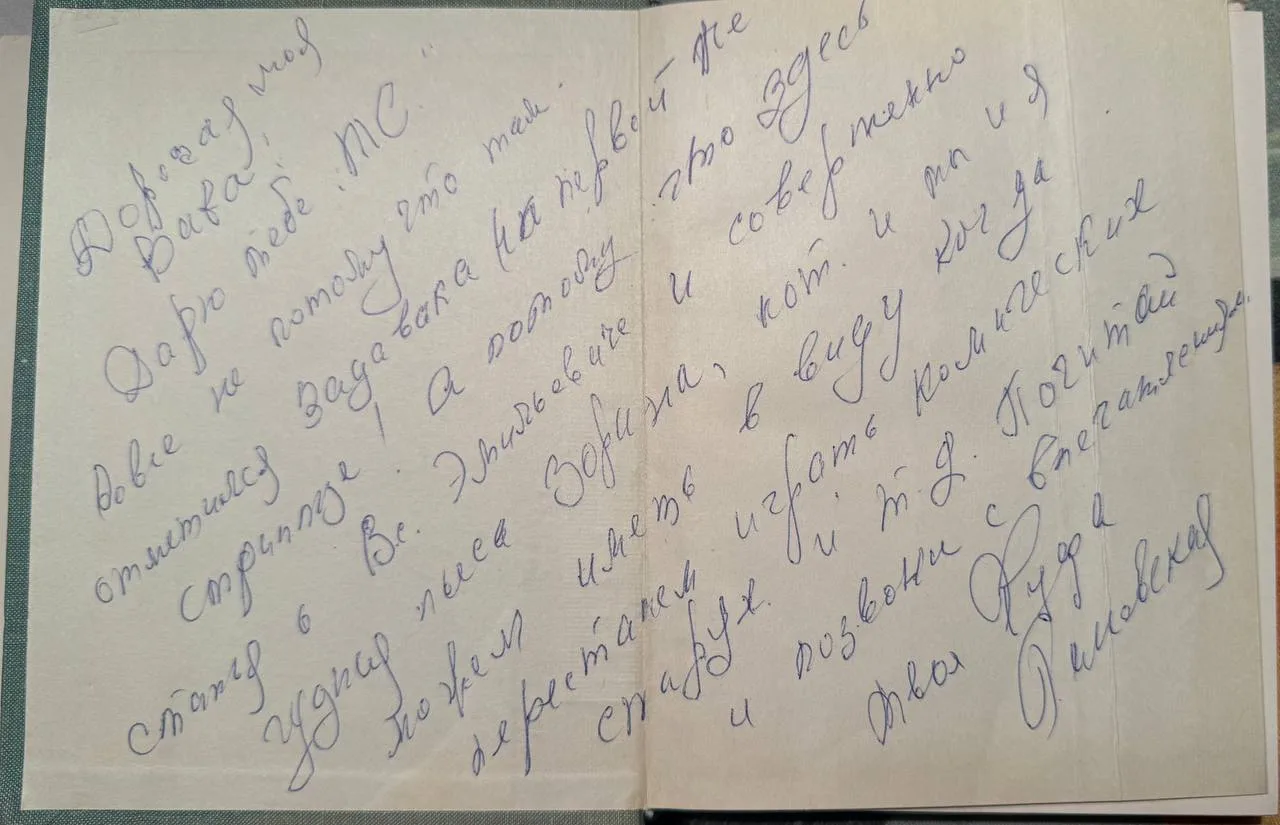 Дорогая моя
Вава!
Дарю тебе "ТС."
вовсе не потому что там.
отметился Задавака (на первой же
странице! А потому что здесь
статья о Вс. Эмильевиче и совершенно
чудная пьеса Зорина, кот. и ты и я
можем иметь в виду когда
перестанем играть комических
старух. и т.д. Почитай
и позвони с впечатлениями.
твоя